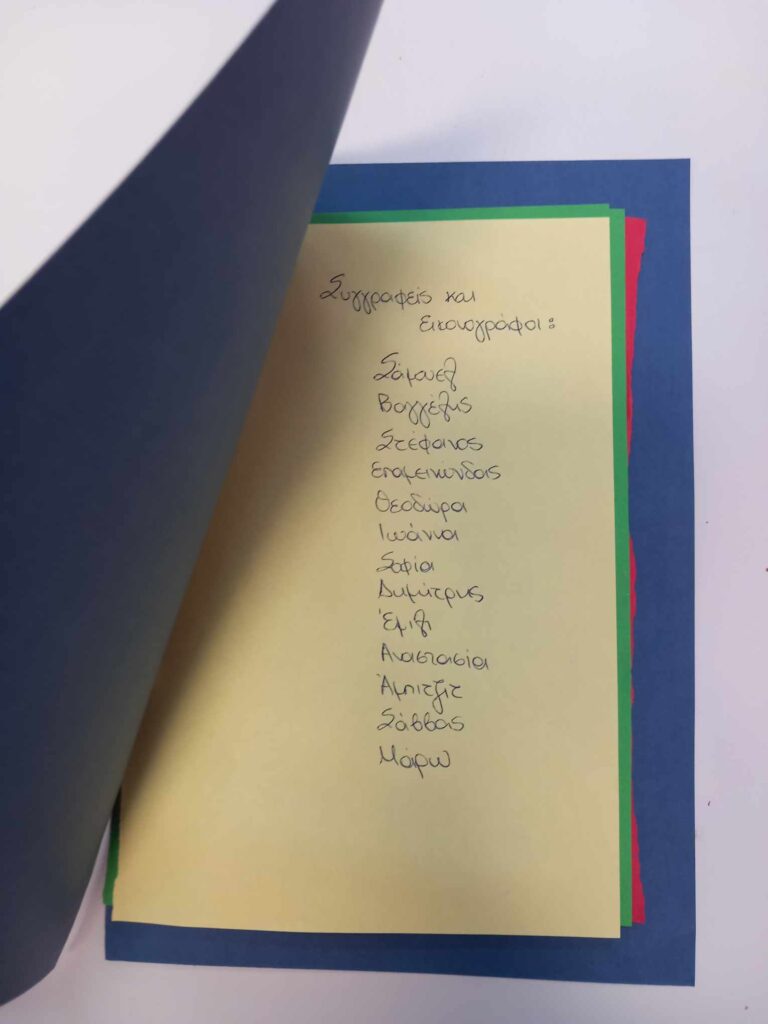 Συγγραφείς και
εικονογράφοι:
Σάμουελ
Βαγγέλης
Στέφανος
Επαμεινώνδας
Θεοδώρα
Ιωάννα
Σοφία
Δημήτρης
Έμιλι
Αναστασία
Άμπιτζιτ
Σάββας
Μάρω